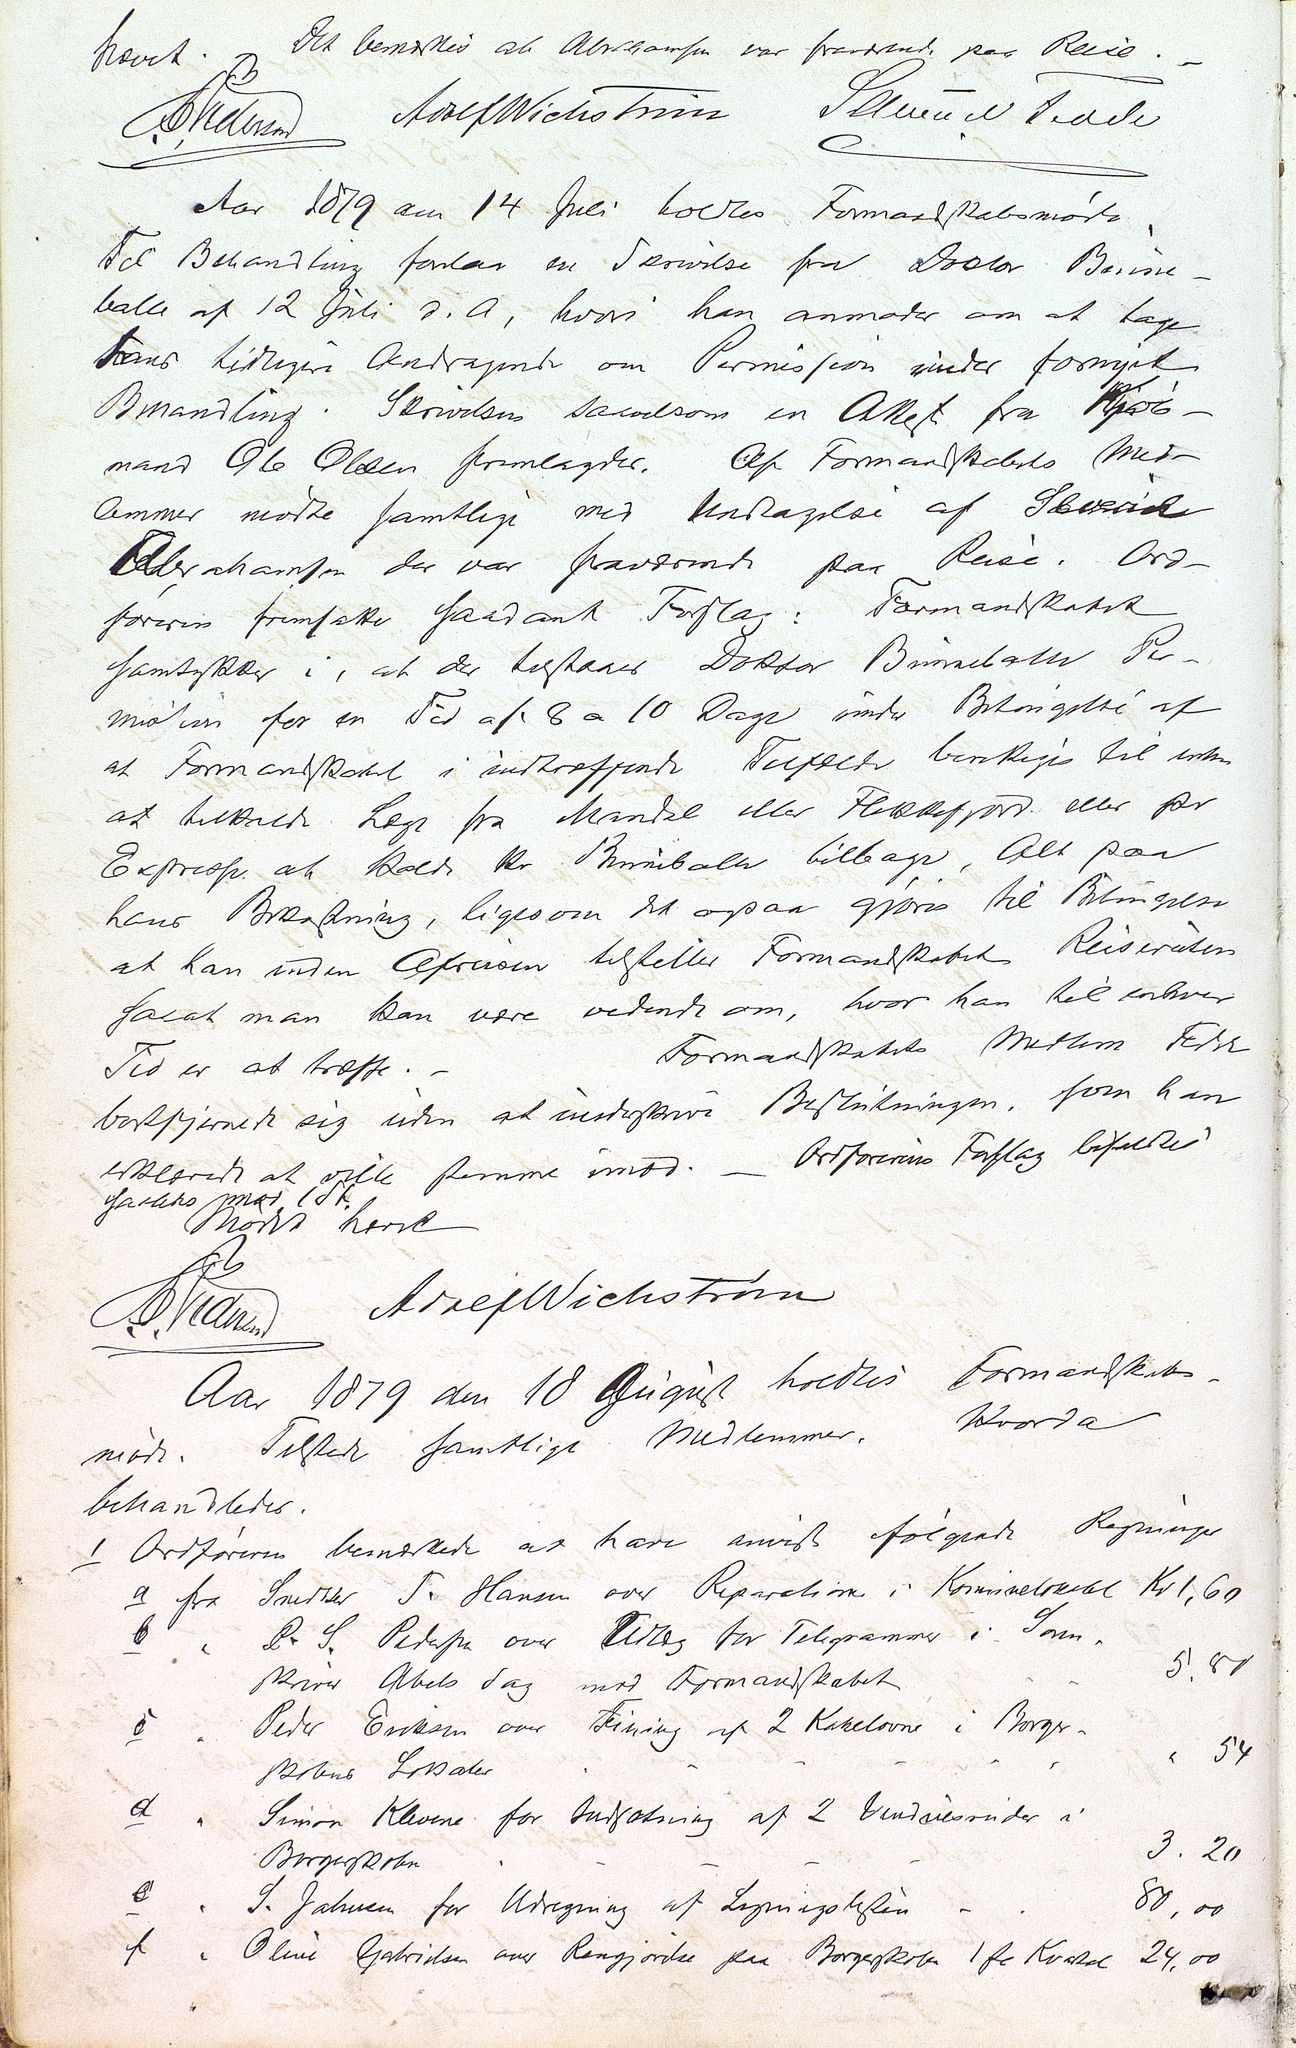 hævet. Det bemærkes at Abrahamsen var fraværende paa Reise. –
Adolf Wichstrøm
Aar 1879 den 14 Juli holdtes Formandskabsmøde.
Til Behandling forelaa en Skrivelse fra Doktor Binne-
balle af 12 Juli d. A, hvori han anmoder om at tage
hans tidligere Andragende om Permission under fornyet
Behandling. Skrivelsen saavelsom en Attest fra Kjøb-
mand Ole Olsen fremlagdes. Af Formandskabets Med-
lemmer mødte samtlige med Undtagelse af
Abrahamsen der var fraværende paa Reise. Ord-
føreren fremsatte saadant Forslag: Formandskabet
samtykker i, at der tilstaaes Doktor Binneballe Per-
mission for en Tid af 8 a 10 Dage under Betingelse af
at Formandskabet i indtræffende Tilfælde berettiges til enten
at tilkalde Læge fra Mandal eller Flekkefjord eller pr
Express at kalde Hr Binneballe tilbage, Alt paa
hans Bekostning, ligesom det ogsaa gjøres til Betingelse
at han inden Afreisen tilstiller Formandskabet Reiseruten
saaat man kan være vidende om, hvor han til enhver
Tid er at træffe. – Formandskabets Medlem Tedde
bortfjernede sig uden at underskrive Beslutningen, som han
erklærede at ville stemme imod. – Ordførerens Forslag bifaldtes
saaledes mod 1 St.
Mødet hævet
Adolf Wichstrøm
Aar 1879 den 18 August holdtes Formandskabs-
møde. Tilstede samtlige Medlemmer. Hvorda
behandledes.
1 Ordføreren bemærkede at have anvist følgende Regninger
a fra Smed T. Hansen over Reparation i Kominelokalet Kr 1,60
b " P. S. Pedersen over Udlæg for Telegrammer i Soren-
skriver Abels Sag mod Formandskabet 5.80
c " Peder Eriksen over Fining af 2 Kakelovne i Borger-
skolens Lokaler " 54
d " Simon Klevene for Indsætning af 2 Vinduesruder i
Borgerskolen 3. 20
e " S. Jahnsen for Udregning af Ligningslisten 80,00
f " Oline Gabrielsen over Rengjørelse paa Borgerskolen 1ste Kvartal 24,00